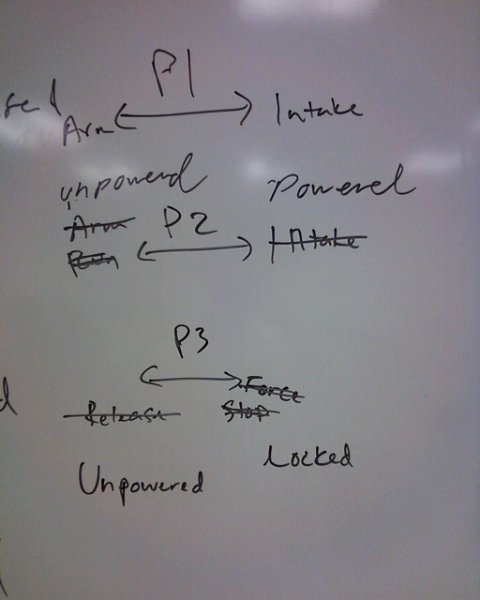 P1
Arm Intake
unpowerd Powered
Arm P2 Intake
P3
Force
Release Stop
Locked
Unpowered